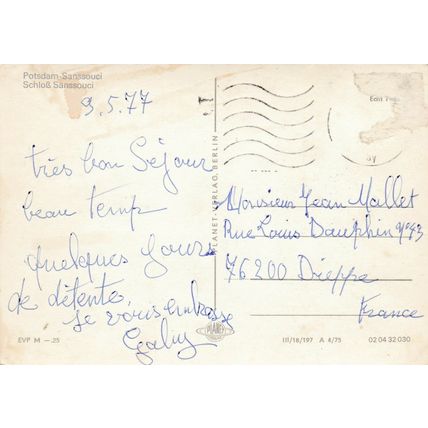 Potsdam-Sanssouci
Schloß Sanssouci
9.5.77
très bon Séjour
beau temp
quelques jours
de détente,
je vous embrasse
Gaby
PLANET-VERLAG, BERLIN
Echt
Monsieur Jean Mallet
Rue Louis Dauphin n°43
76200 Dieppe
France
EVP M –.25
PLANET
III/18/197 A 4/75 02 04 32 030